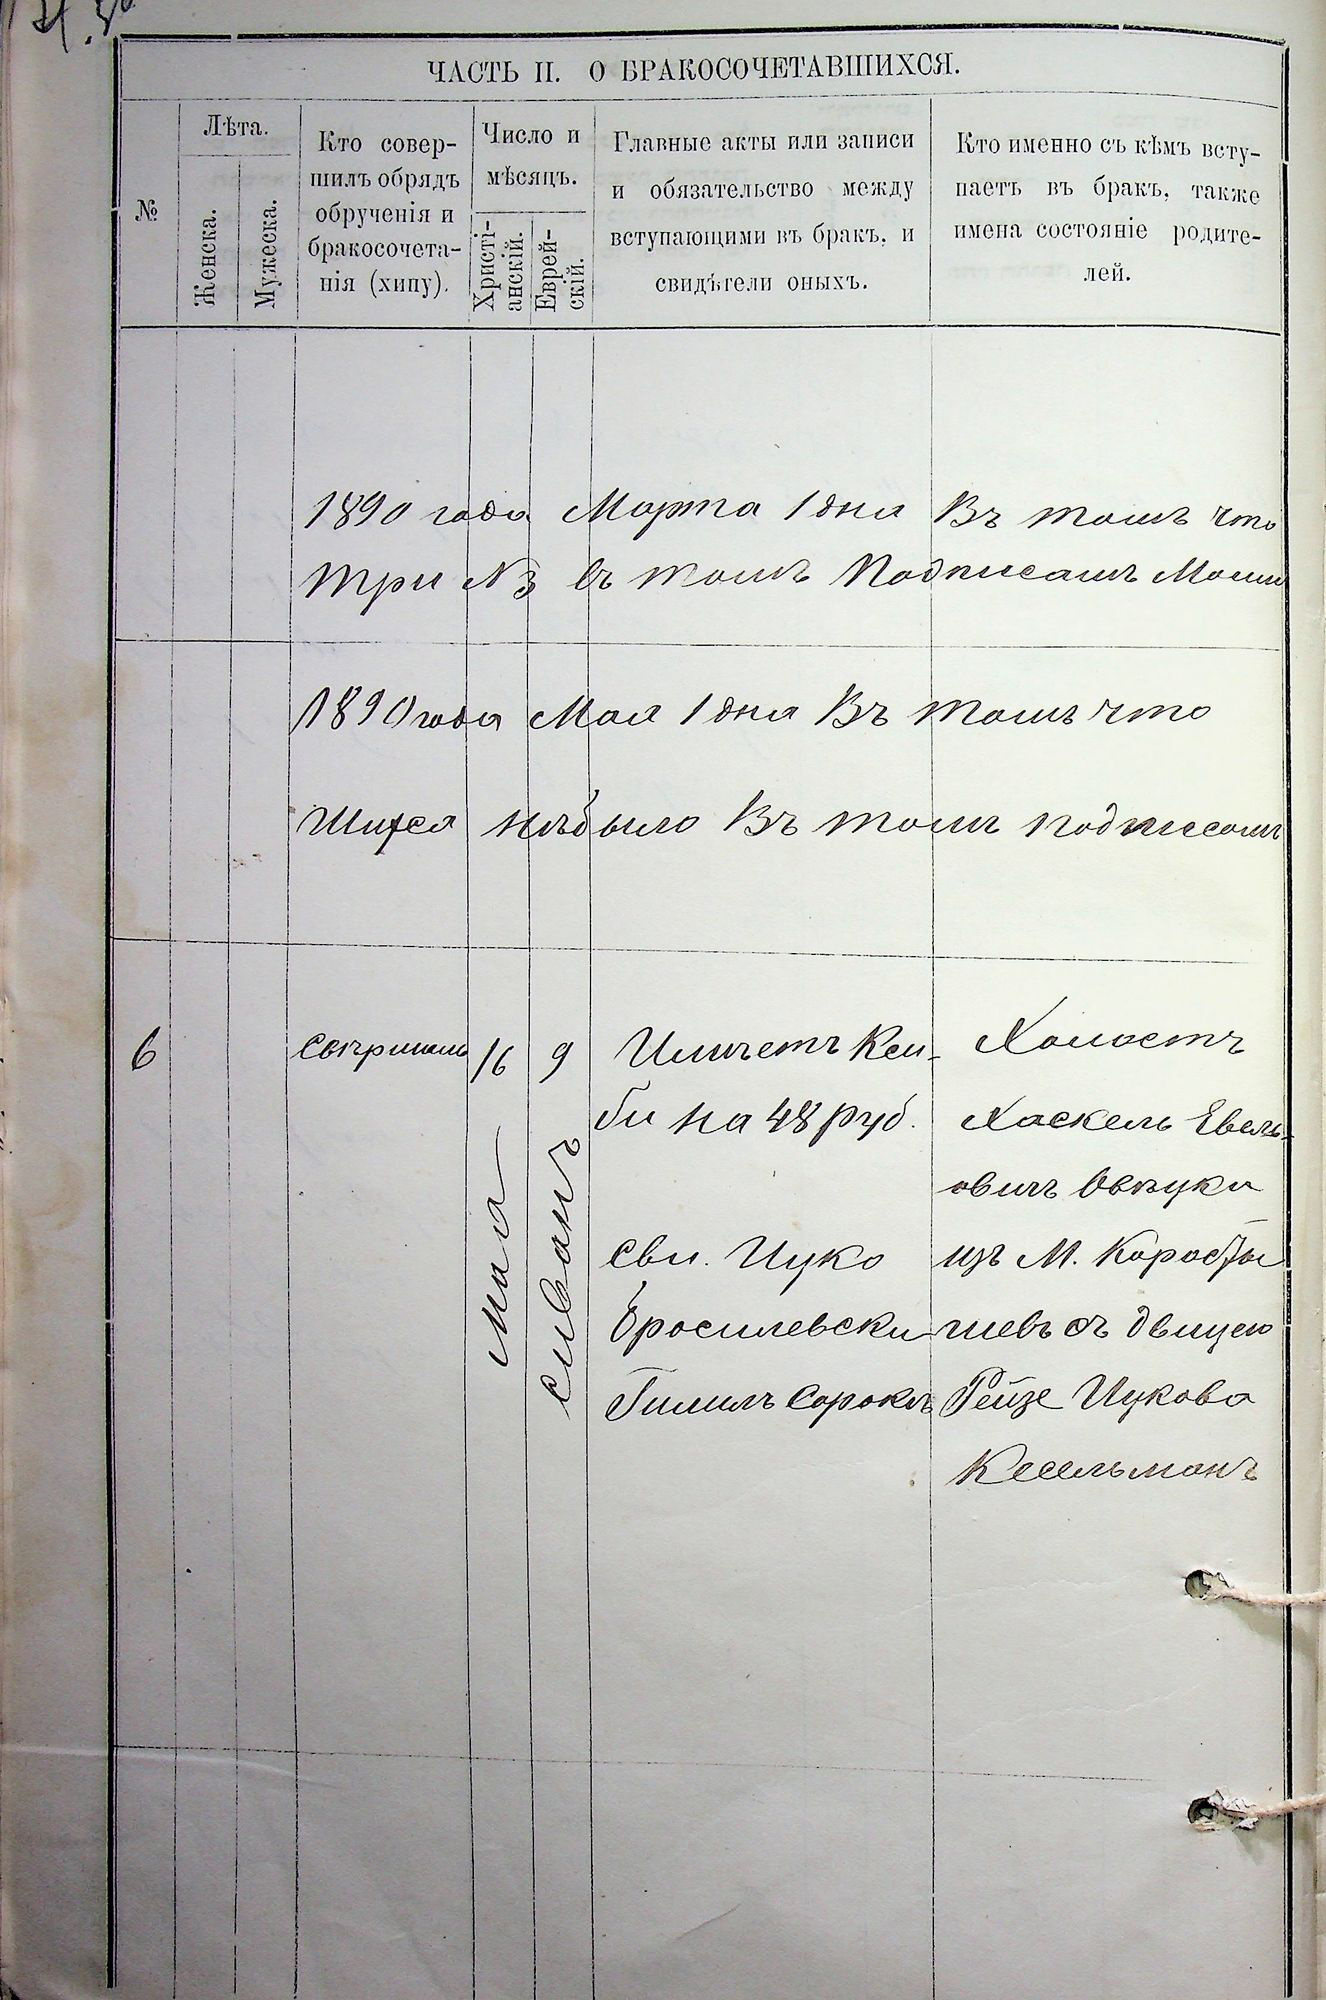 ЧАСТЬ II. О БРАКОСОЧЕТАВШИХСЯ.
№
Лѣта.
Женска.
Мужеска.
Кто совер-
шилъ обрядъ
обрученія и
бракосочета-
нія (хипу).
Число и
мѣсяцъ.
Христі-
анскій.
Еврей-
скій.
Главные акты или записи
и обязательство между
вступающими въ бракъ, и
свидѣтели оныхъ.
Кто именно съ кѣмъ всту-
паетъ въ бракъ, также
имена состояніе родите-
лей.
1890 года Марта 1 дня Въ томъ что
три №3 въ томъ Подписамъ
1890 года Мая 1 дня Въ томъ что
небыло Въ томъ подписамъ
6
16
мая
9
сиванъ
Кеи-
би на 48 руб.
Сви. Ицко
Бросилевски
Гилилъ Сорокъ
Холостъ
Хаскель Евель-
овичъ
изъ М. Коросты
шевъ съ двицею
Рейзе Ицкова
Кесельманъ